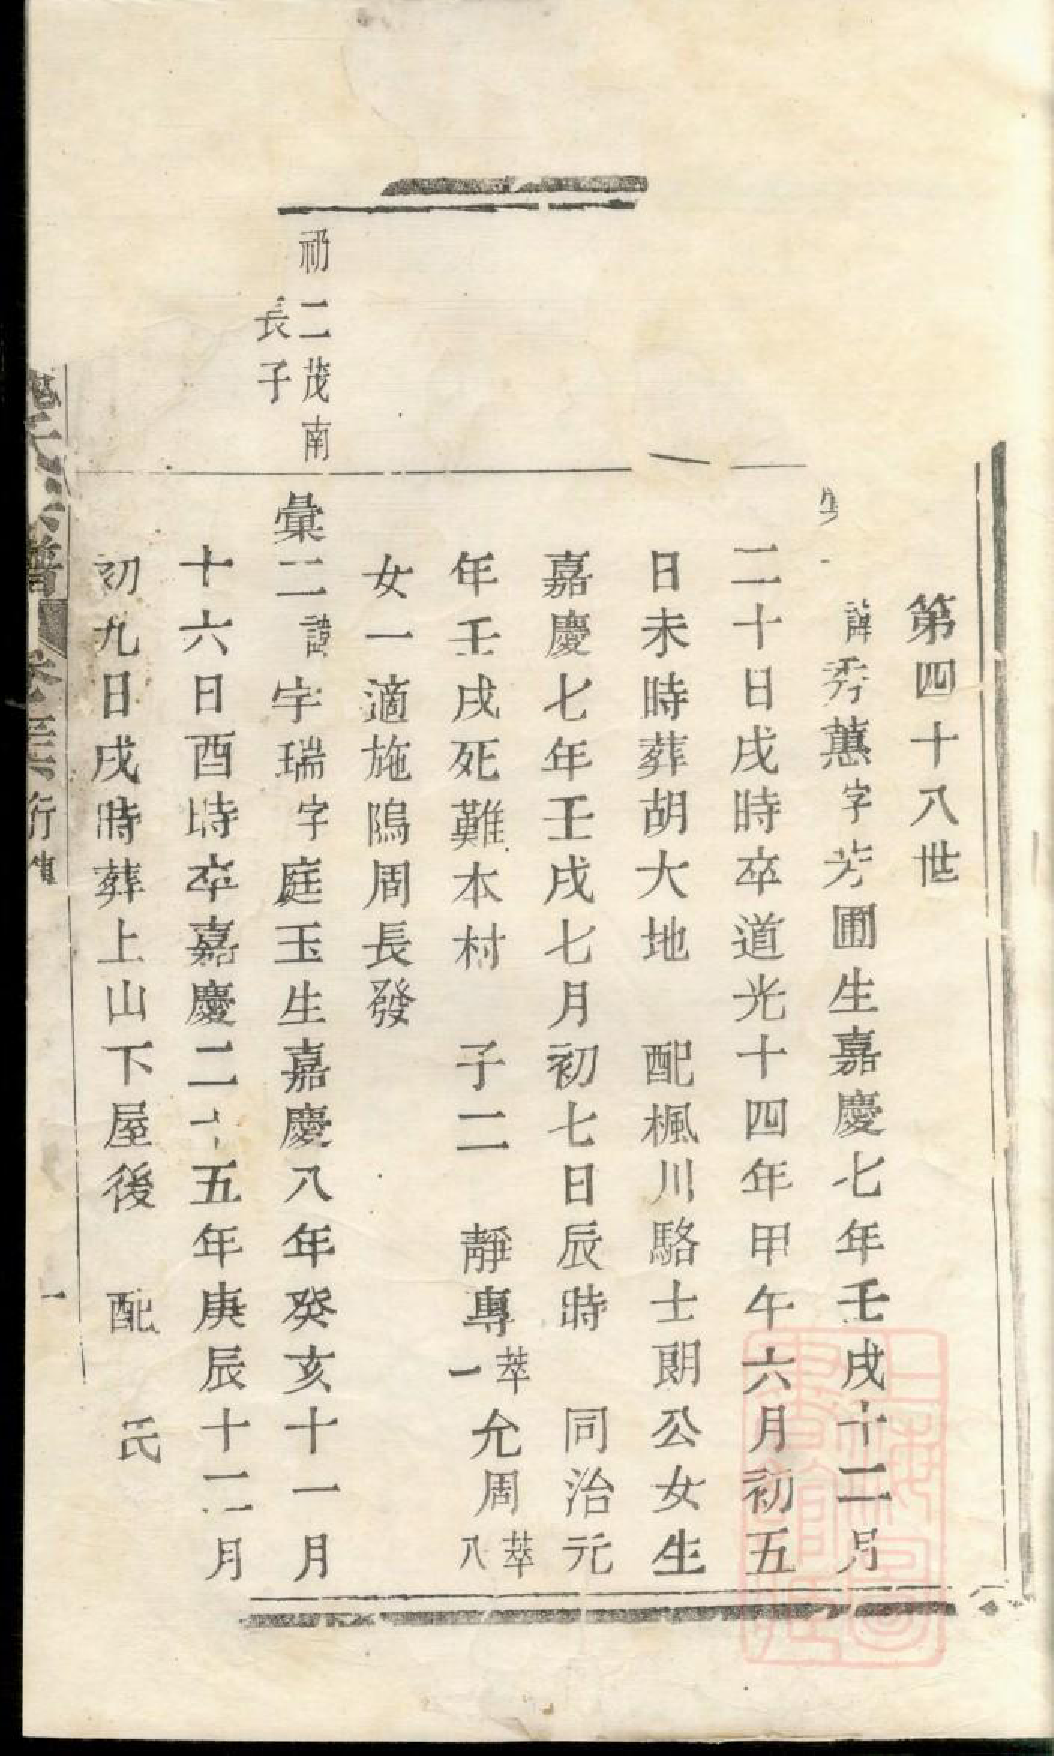 第四十八世
諱秀蕙字芳圃生嘉慶七年壬戌十二月
二十日戌時卒道光十四年甲午六月初五
日未時葬胡大地 配楓川駱士朗公女生
嘉慶七年壬戌七月初七日辰時 同治元
年壬戌死難本村 子二 靜專萃一允周萃八
女一適施隝周長發
礽二茂南
長子
彙二諱 字瑞字庭玉生嘉慶八年癸亥十一月
十六日酉時卒嘉慶二十五年庚辰十二月
初九日戌時葬上山下屋後 配 氏
氏宗譜 卷 行傳 一